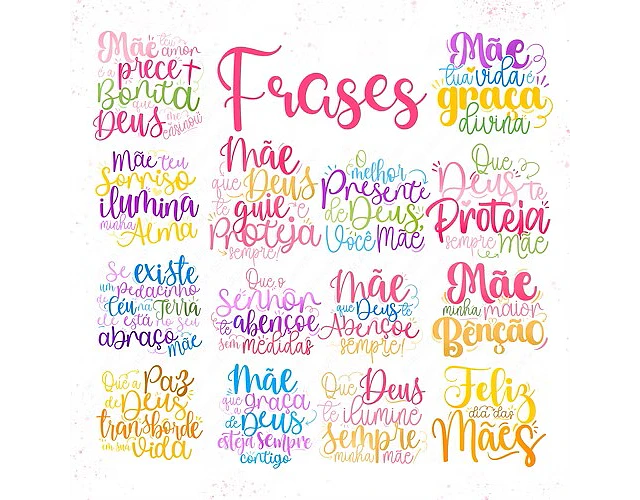 Mãe teu amor
é a prece
Bonita
que
Deus me
ensinou
Frases
Mãe
tua vida é
graça
divina
Mãe teu
Sorriso
ilumina
minha
Alma
Mãe
que Deus
te guie e
Proteja
sempre!
O melhor
Presente
de Deus,
Você Mãe
Que
Deus te
Proteja
sempre Mãe
Se existe
um pedacinho
de Céu na Terra
ele está no seu
abraço mãe
Que o
Senhor
te abençoe
sem medidas
Mãe
que Deus te
Abençoe
sempre!
Mãe
minha maior
Bênção
Que a Paz
de Deus
transborde
em sua vida
Mãe
que a graça
de Deus
esteja sempre
contigo
Que Deus
te ilumine
Sempre
minha mãe
Feliz
dia das
Mães